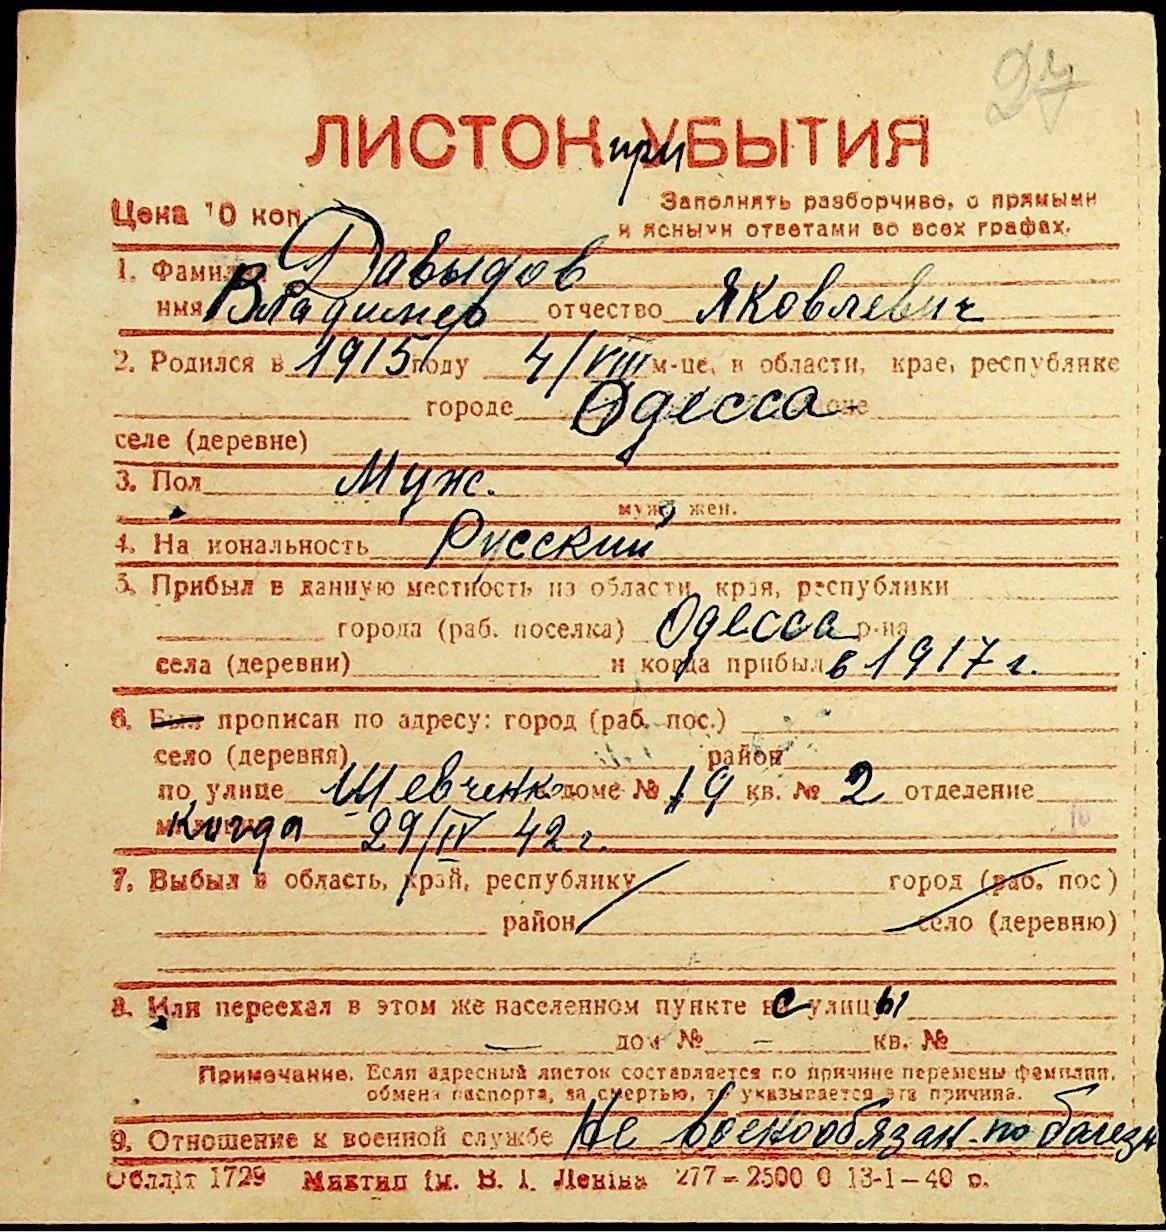 27
ЛИСТОК при УБЫТИЯ
Цена 10 коп.
Заполнять разборчиво, с прямыми
и ясными ответами во всех графах.
1. Фамилия Давыдов
имя Владимир отчество Яковлевич
2. Родился в 1915 году 4/VIII м-це, в области, крае, республике
городе Одесса
селе (деревне)
3. Пол Муж.
муж. жен.
4. Национальность Русский
5. Прибыл в данную местность из области, края, республики
города (раб. поселка) Одесса р-на
села (деревни) и когда прибыл в 1917 г.
6. Был прописан по адресу: город (раб. пос.)
село (деревня) район
по улице Шевченко доме № 19 кв. № 2 отделение
Когда 29/IV 42 г.
7. Выбыл в область, край, республику город (раб. пос)
район село (деревню)
8. Или переехал в этом же населенном пункте с улицы
— дом № – кв. №
Примечание. Если адресный листок составляется по причине перемены фамилии,
обмена паспорта, за смертью, то указывается эта причина.
9. Отношение к военной службе Не военнообязан. по болезн
Обллiт 1729 Миктип iм. В. I. Ленiна 277–2500 0 13-1–40 р.